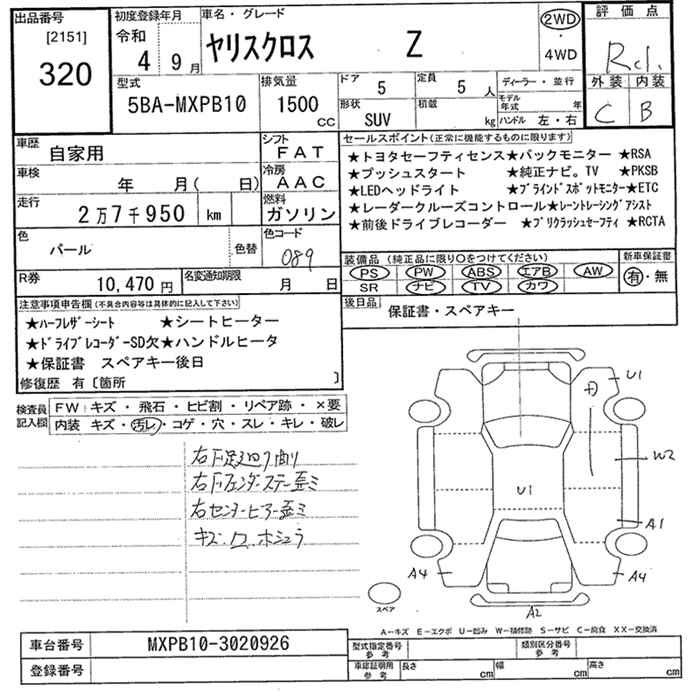 出品番号 初度登録年月 車名・グレード 評価点
[2151] 320 令和 4年 9月 ヤリスクロス Z 2WD・4WD R
外装 内装
C B
型式 排気量 ドア 5 定員 5人 ディーラー・並行
5BA-MXPB10 1500cc 形状 SUV 積載 kg モデル年式 年 ハンドル 左・右
車歴 自家用 シフト FAT セールスポイント(正常に機能するものに限ります)
★トヨタセーフティセンス★バックモニター ★RSA
車検 年 月( 日) 冷房 AAC ★プッシュスタート ★純正ナビ。TV ★PKSB
★LEDヘッドライト ★ブラインドスポットモニター★ETC
走行 2万7千950 km 燃料 ガソリン ★レーダークルーズコントロール★レーントレーシングアシスト
★前後ドライブレコーダー ★プリクラッシュセーフティ ★RCTA
色 パール 色替 色コード 089
装備品 (純正品に限り○をつけてください) 新車保証書
PS PW ABS エアB AW 有・無
SR ナビ TV カワ
R券 10,470円 名変通知期限 月 日
後日品 保証書・スペアキー
注意事項申告欄(不具合内容等は具体的に記入して下さい)
★ハーフレザーシート ★シートヒーター
★ドライブレコーダーSD欠★ハンドルヒータ
★保証書 スペアキー後日
修復歴 有〔箇所 〕
検査員記入欄 FW キズ・飛石・ヒビ割・リペア跡・×要
内装 キズ・汚レ・コゲ・穴・スレ・キレ・破レ
右F足廻り曲り
右Fフェンダーステー歪ミ
右センターピラー歪ミ
キズ
U1
W2
U1
A1
A4
A4
A2
スペア
A−キズ E−エクボ U−凹み W−補修跡 S−サビ C−腐食 XX−交換済
車台番号 MXPB10-3020926 型式指定番号 参考 類別区分番号 参考
登録番号 車庫証明用 参考 長さ cm 幅 cm 高さ cm